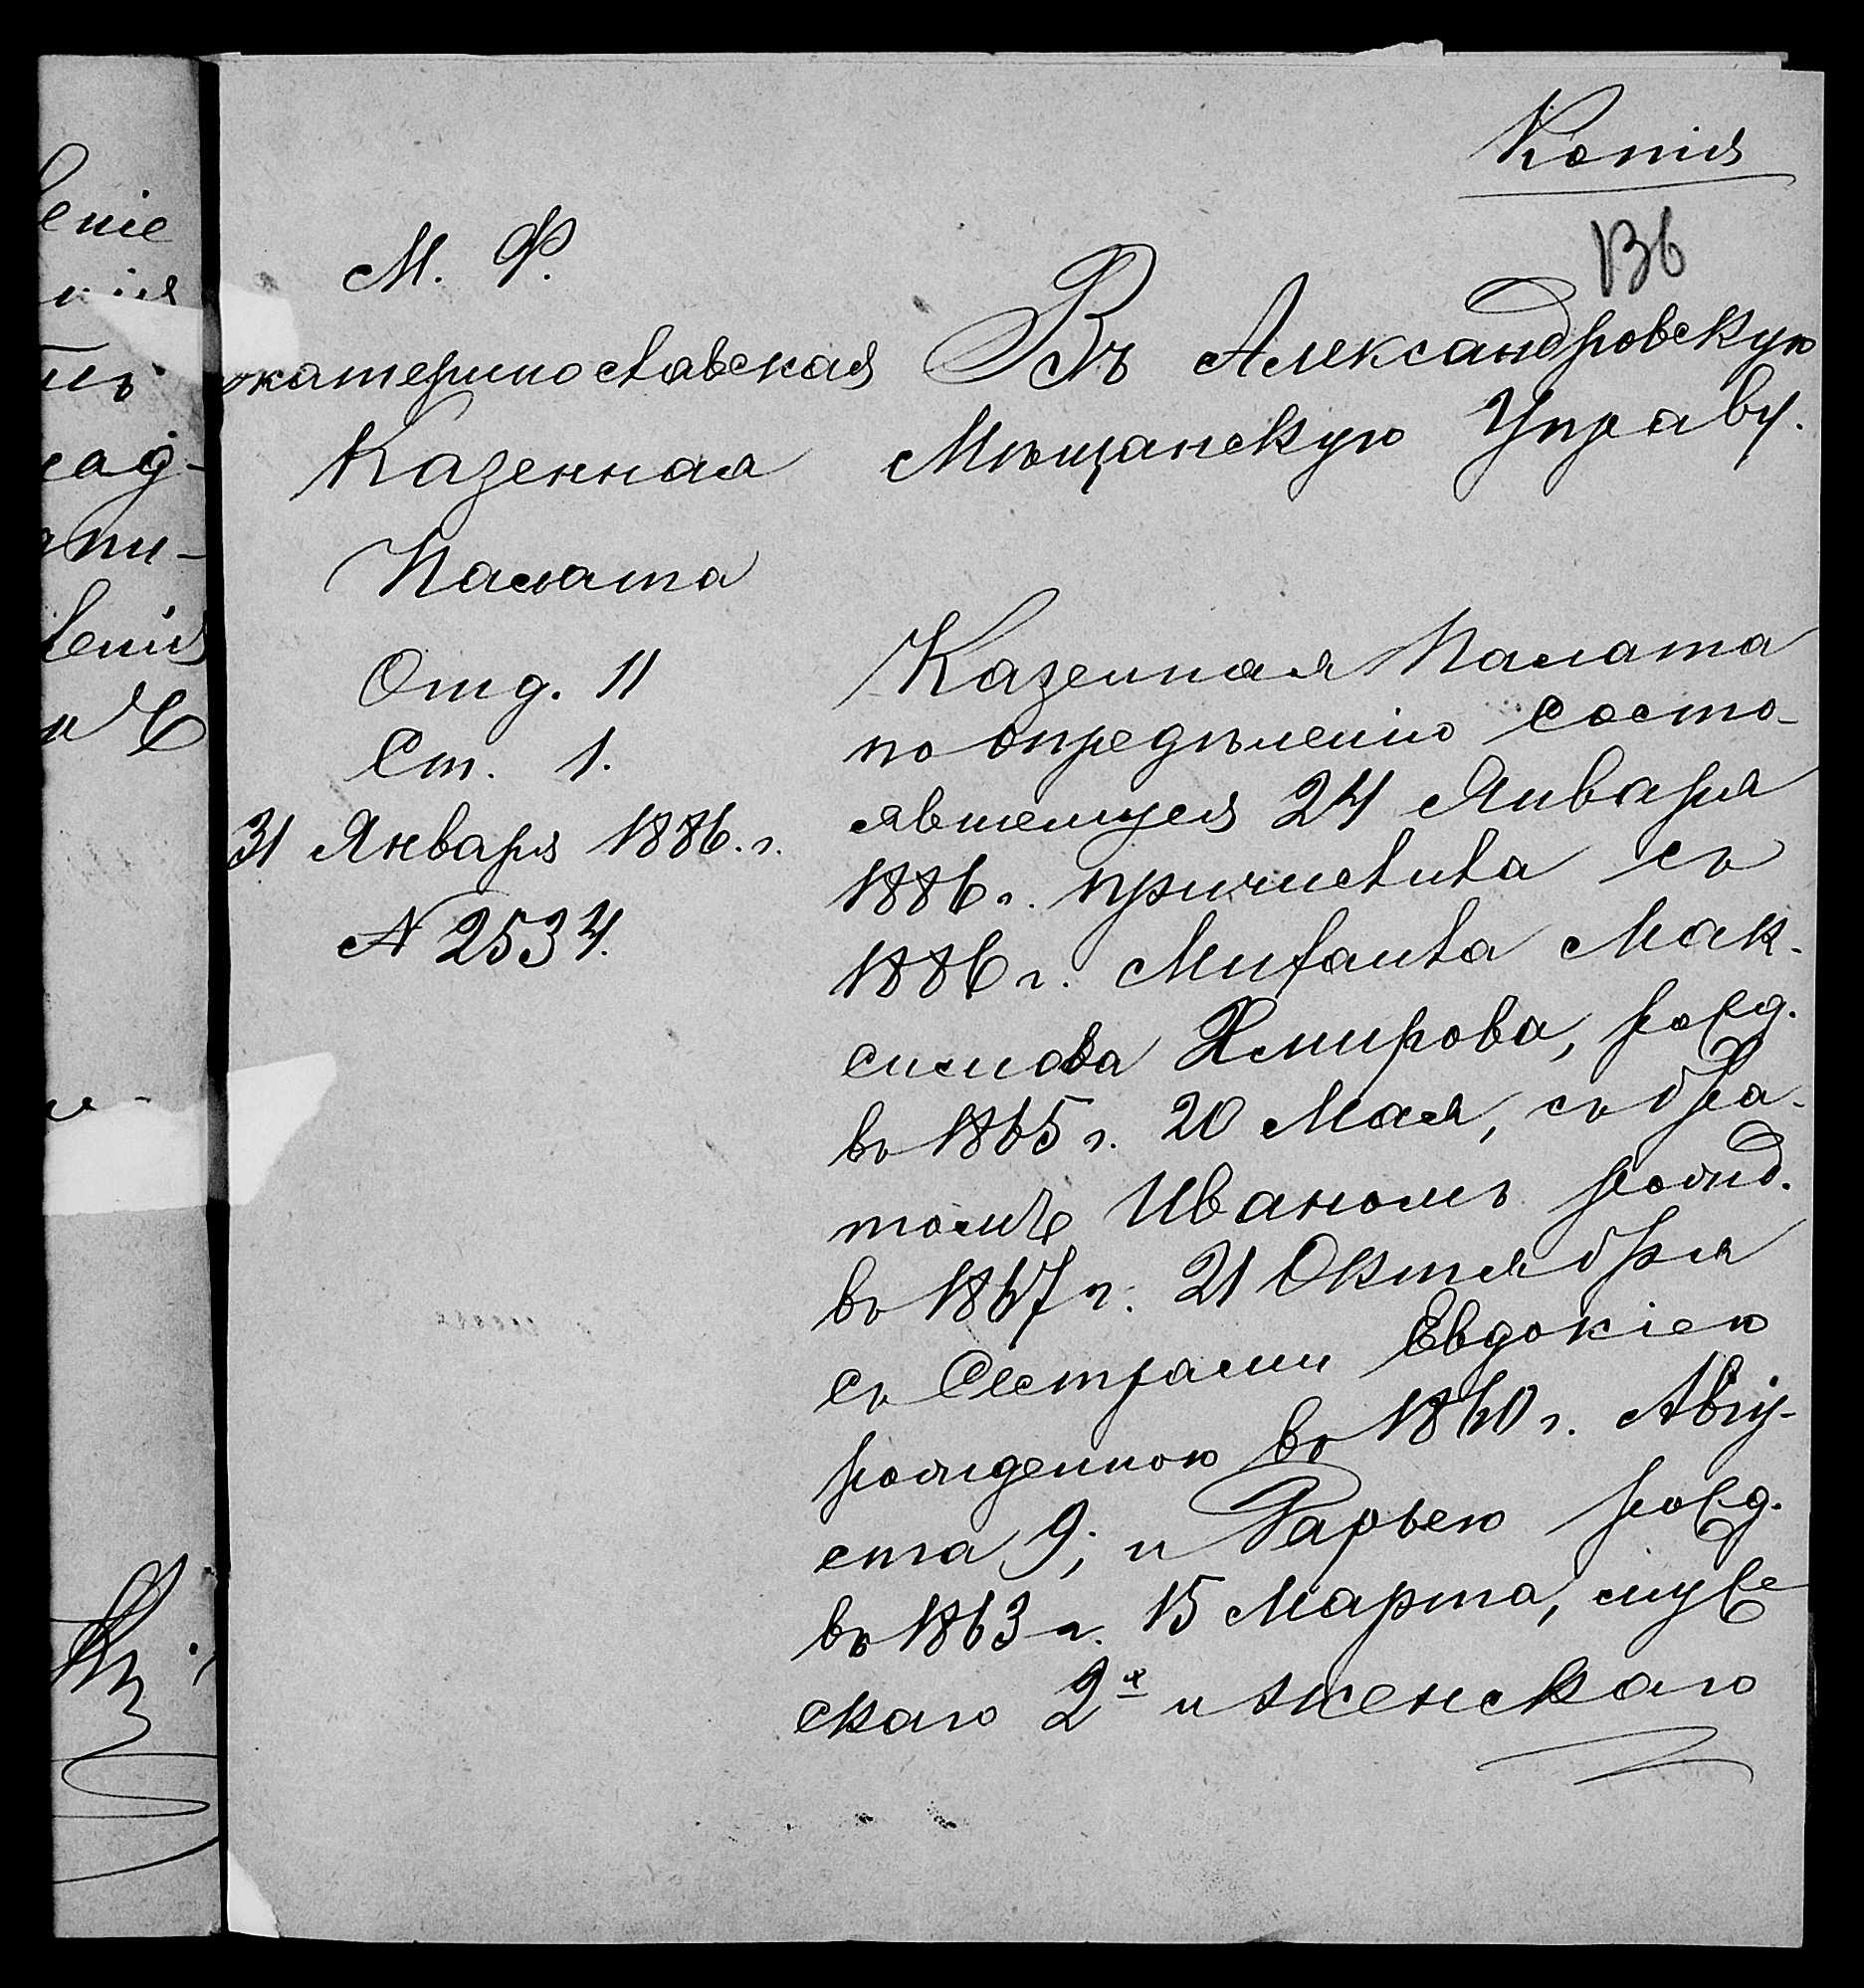 Копія
136
М. Ф.
Екатеринославская
Казенная
Палата
Отд. II
Ст. 1.
31 Января 1886. г.
№ 2534.
Въ Александровскую
Мѣщанскую Управу.
Казенная Палата
по опредѣленію состо-
явшемуся 24 Января
1886 г. причислила съ
1886 г. Михаила Мак-
симова Хмирова, рожд.
въ 1865 г. 20 Мая, съ бра-
томъ Иваномъ рожд.
въ 1867 г. 21 Октября
съ Сестрами Евдокіею
рожденною въ 1860 г. Авгу-
ста 9; и Дарьею рожд.
въ 1863 г. 15 Марта, муже
скаго 2х и женскаго